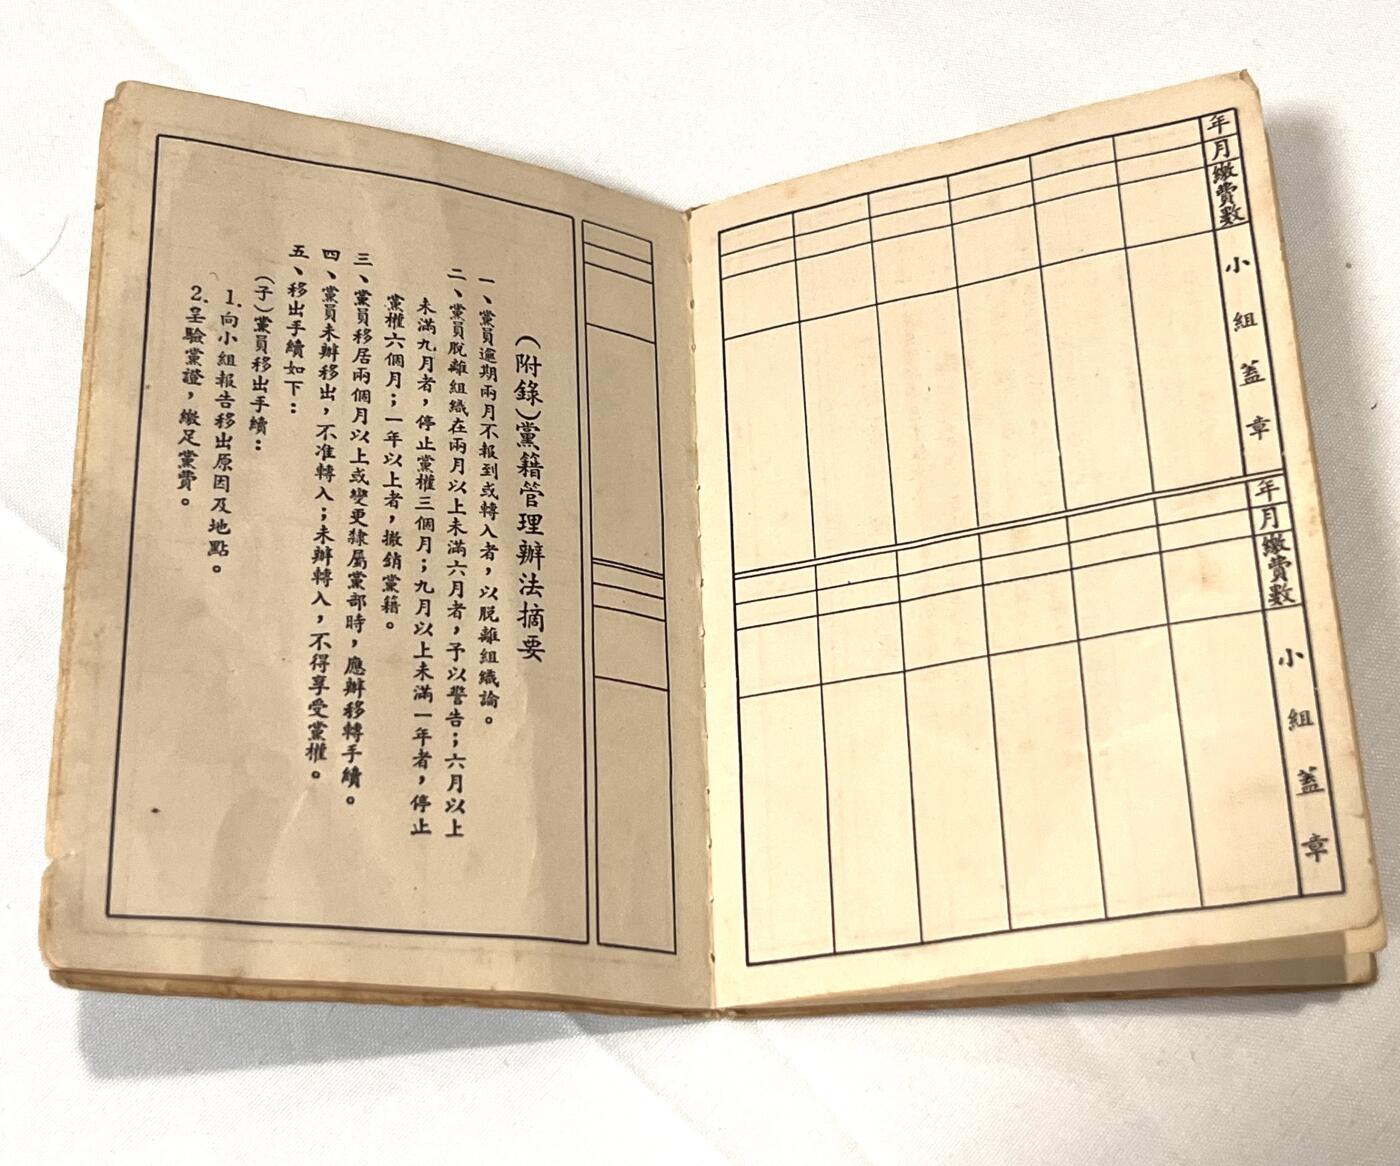 年
月
繳費數
小組蓋章
年
月
繳費數
小組蓋章
（附錄）黨籍管理辦法摘要
一、黨員逾期兩月不報到或轉入者，以脫離組織論。
二、黨員脫離組織在兩月以上未滿六月者，予以警告；六月以上
未滿九月者，停止黨權三個月；九月以上未滿一年者，停止
黨權六個月；一年以上者，撤銷黨籍。
三、黨員移居兩個月以上或變更隸屬黨部時，應辦移轉手續。
四、黨員未辦移出，不准轉入；未辦轉入，不得享受黨權。
五、移出手續如下：
（子）黨員移出手續：
1.向小組報告移出原因及地點。
2.呈驗黨證，繳足黨費。